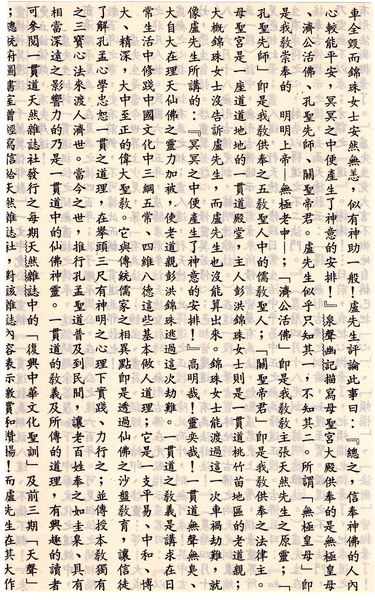 車全毀而錦珠女士安然無恙，似有神助一般！盧先生評論此事曰：『總之，信奉神佛的人內
心較能平安，冥冥之中便產生了神意的安排！』泉聲幽記描寫母聖宮大殿供奉的是無極皇母
、濟公活佛、孔聖先師、關聖帝君。盧先生似乎只知其一，不知其二。所謂「無極皇母」即
是我教崇奉的　明明上帝—無極老中—；「濟公活佛」即是我教教主張天然先生之原靈；「
孔聖先師」即是我教供奉之五教聖人中的儒教聖人；「關聖帝君」即是我教供奉之法律主。
母聖宮是一座道道地地的一貫道殿堂，主人彭洪錦珠女士則是一貫道桃竹苗地區的老道親；
大概錦珠女士沒告訴盧先生，而盧先生也沒能算出來。錦珠女士能渡過這一次車禍劫難，就
像盧先生所講的：『冥冥之中便產生了神意的安排！』高明哉！靈奕哉！一貫道無聲無臭、
大自大在理天仙佛之靈力加被，使老道親彭洪錦珠逃過這次劫難。一貫道之教義是講求在日
常生活中修踐中國文化中三綱五常、四維八德這些基本做人道理；它是一支平易、中和、博
大、精深，大中至正的偉大聖教。它與傳統儒家之相異點即是透過仙佛之沙盤教育，讓信徒
了解孔孟心學忠恕一貫之道理，在擧頭三尺有神明之心理下實踐、力行之；並傳授本教獨有
之三寶心法來渡人濟世。當今之世，推行孔孟聖道普及到民間，讓老百姓奉之如圭臬、具有
相當深遠之影響力的乃是一貫道中的仙佛神靈。一貫道的教義及所傳的道理，有興趣的讀者
可參閱一貫道天然雜誌社發行之每期天然雜誌中的「復興中華文化聖訓」及前三期「天聲」
；總統府圖書室曾經寫信給天然雜誌社，對該雜誌內容表示敬賞和贊揚！而盧先生在其大作